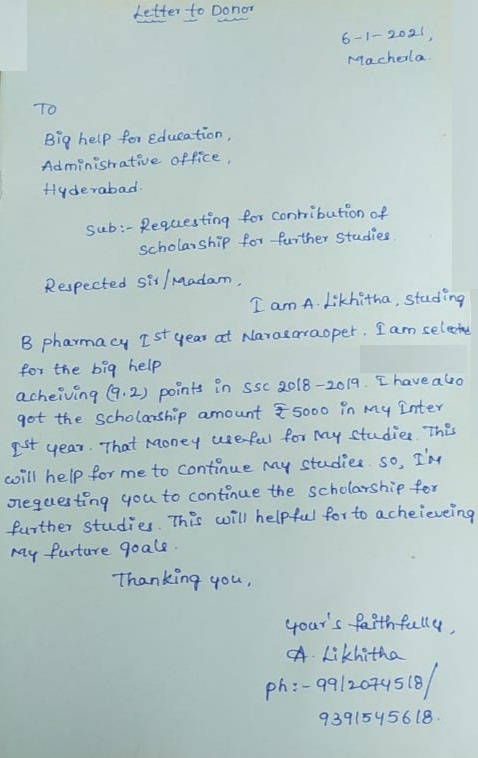 Letter to Donor
6-1-2021,
Macherla.
TO
Big help for Education,
Administrative office,
Hyderabad.
Sub:- Requesting for contribution of
scholarship for further studies.
Respected Sir/Madam,
I am A. Likhitha, studing
B pharmacy Ist year at Narasaraopet. I am
for the big help
acheiving (9.2) points in SSC 2018-2019. I have also
got the scholarship amount ₹5000 in my Inter
Ist year. That money useful for my studies. This
will help for me to continue my studies. so, I'm
requesting you to continue the scholarship for
further studies. This will helpful for to acheieveing
my furture goals.
Thanking you,
your's faithfully,
A. Likhitha
ph:- 9912074518/
9391545618.